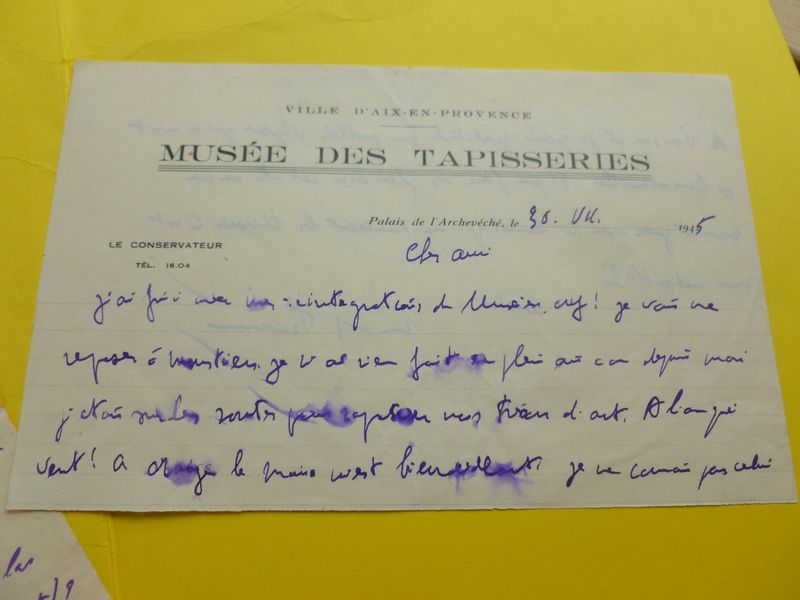 VILLE D'AIX-EN-PROVENCE
MUSÉE DES TAPISSERIES
Palais de l'Archevêché, le 30. VII. 1945
LE CONSERVATEUR
TÉL. 16.04
Cher ami
j'ai fini avec mes reintegrations de Musées, ouf! je vais me
reposer à Moustiers. je n'ai rien fait en plein air car depuis mai
j'étais sur les routes pour rapatrier nos trésors d'art. A l'an qui
vient! A le maire m'est bienveillant. je ne connais pas celui